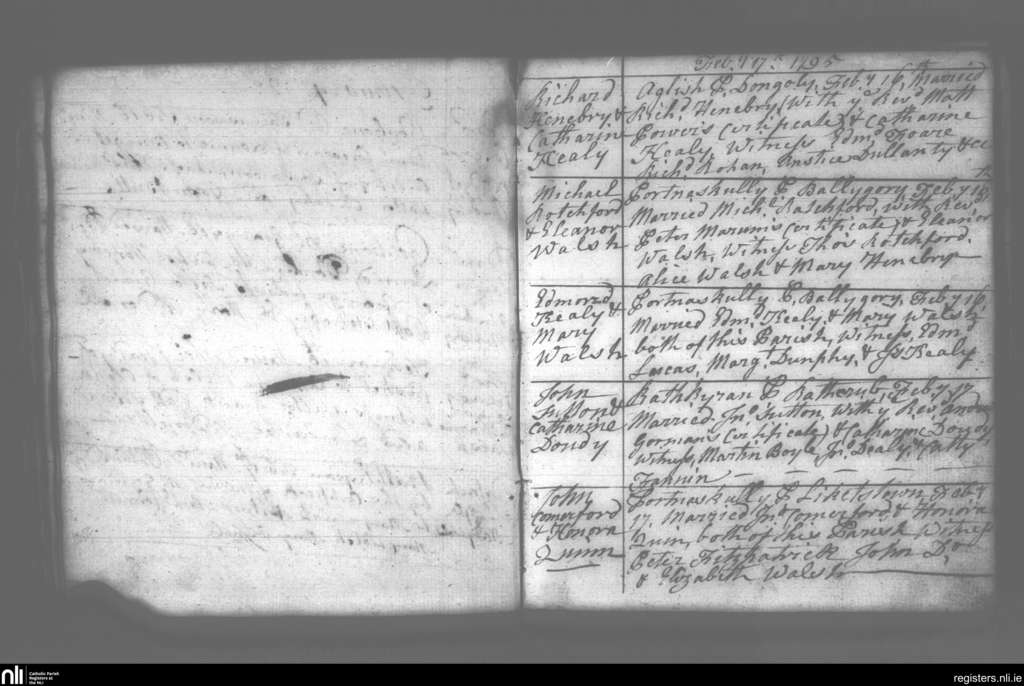 Feby 17th 1795
Richard
Henebry &
Catharine
Kealy
Aglish P. Dongoly, Feby 16th, Married
Richd Henebry (with ye Revd Matt
Powers Certificate) & Catharine
Kealy, Witness Edmd Hoare
Richd Rohan, Anstice Dullanty &c
Michael
Rotchford
& Eleanor
Walsh
Portnaskully P. Ballygory, Feby 16th
Married Michl Ratchford, with Revd
Peter Marums Certificate) & Eleanor
Walsh, Witness Thos Rotchford,
Alice Walsh & Mary Henebry
Edmond
Kealy &
Mary
Walsh
Portnaskully P. Ballygory, Feby 16,
Married Edmd Kealy & Mary Walsh,
both of this Parish, Witness, Edmd
Lucas, Margt Dunphy, & Js Kealy
John
Sutton &
Catharine
Doudy
Rathkyran P. Ratherub, Feby 17
Married Jno Sutton, with y Revd Andrw
Gormans Certificate) & Catharine Doudy
Witness, Martin Boyle, Jno Dealy, & Catty
Fannin
John
Comerford
& Honora
Quinn
Portnaskully P. Liketstown, Feby
17, Married Jno Comerford & Honora
Quin, both of this Parish Witness
Peter Fitzpatrick John Do
& Elizabeth Walsh
nli
Catholic Parish
Registers at
the NLI
registers.nli.ie